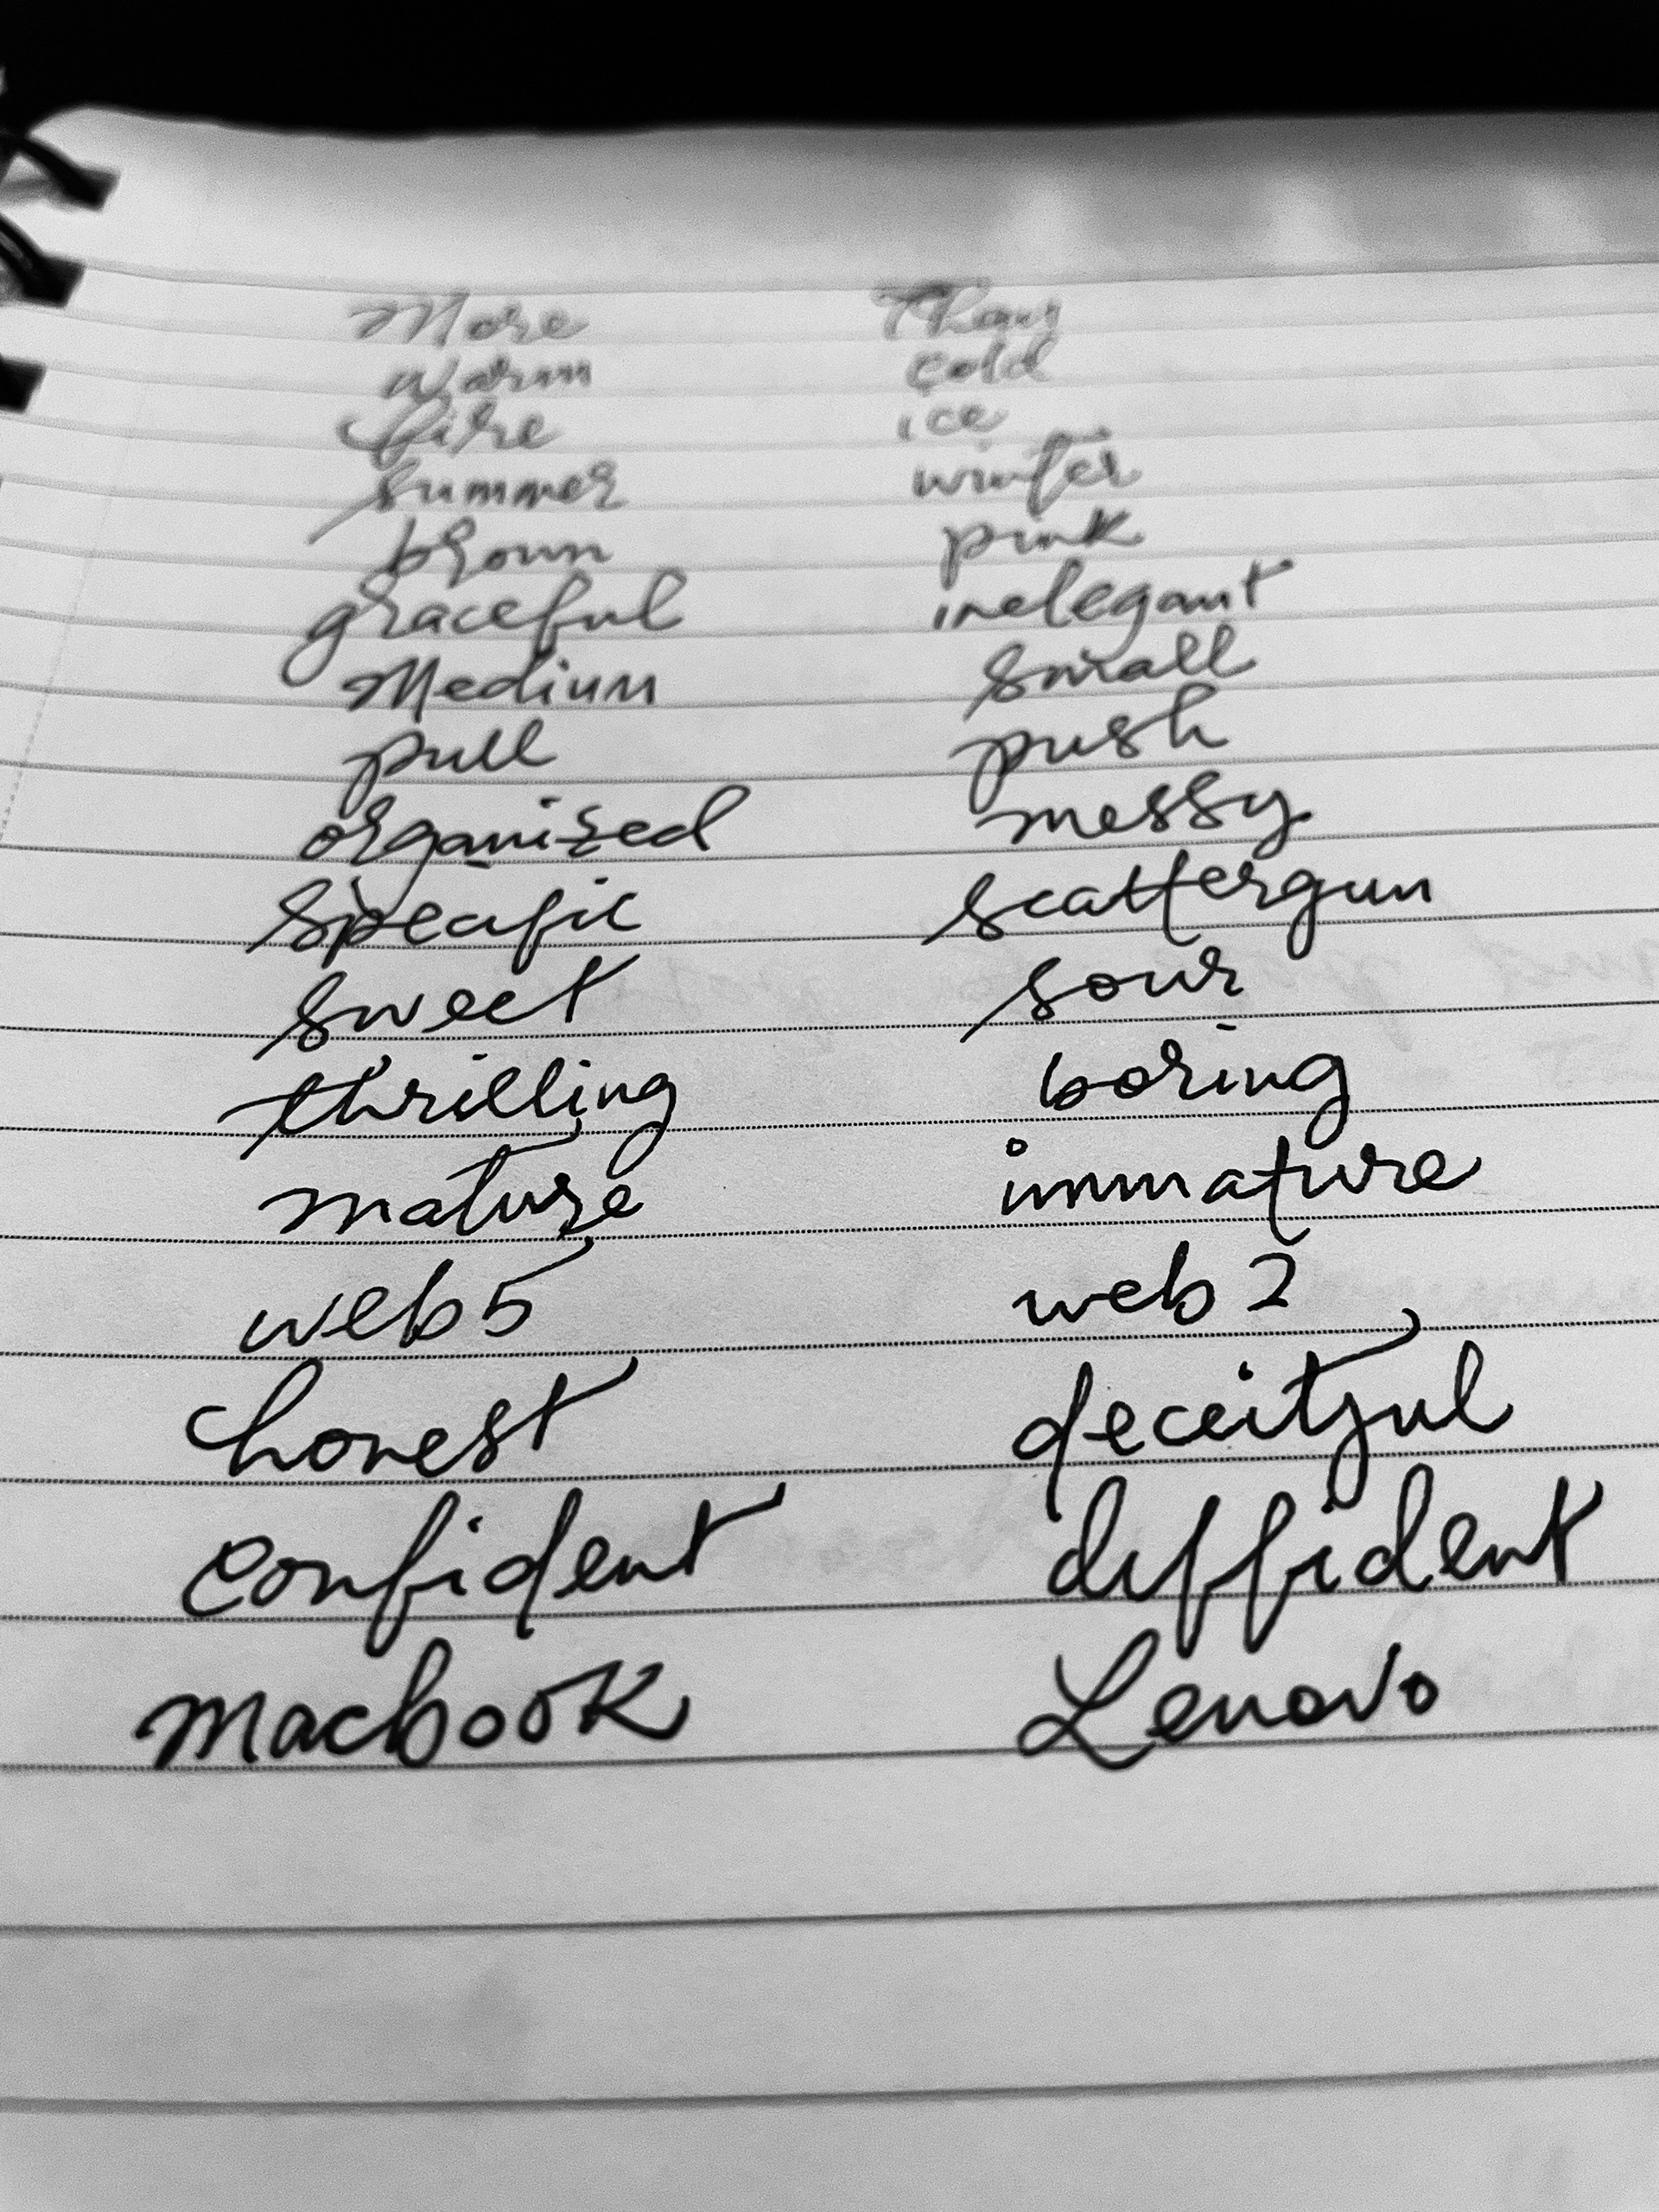 More Than
warm cold
fire ice
summer winter
brown pink
graceful inelegant
Medium small
pull push
organized messy
specific scattergun
sweet sour
thrilling boring
mature immature
web5 web2
honest deceitful
confident diffident
Macbook Lenovo